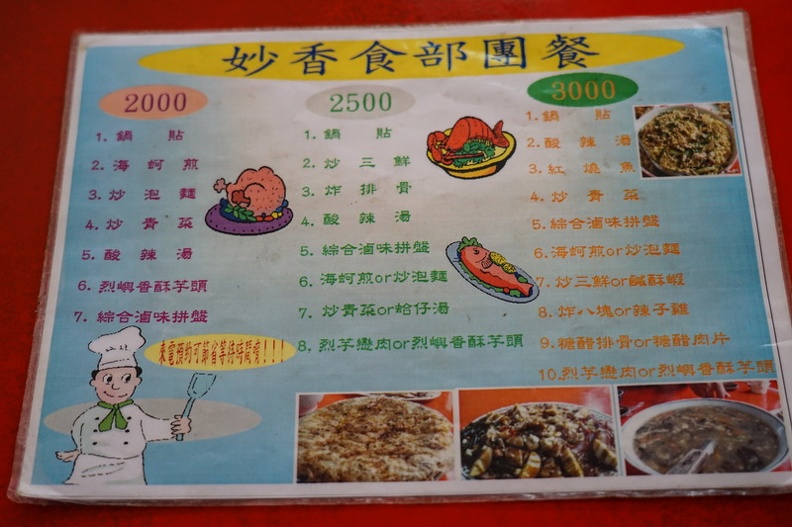 妙香食部團餐
2000
1. 鍋貼
2. 海蚵煎
3. 炒泡麵
4. 炒青菜
5. 酸辣湯
6. 烈嶼香酥芋頭
7. 綜合滷味拼盤
2500
1. 鍋貼
2. 炒三鮮
3. 炸排骨
4. 酸辣湯
5. 綜合滷味拼盤
6. 海蚵煎or炒泡麵
7. 炒青菜or蛤仔湯
8. 烈芋戀肉or烈嶼香酥芋頭
3000
1. 鍋貼
2. 酸辣湯
3. 紅燒魚
4. 炒青菜
5. 綜合滷味拼盤
6. 海蚵煎or炒泡麵
7. 炒三鮮or鹹酥蝦
8. 炸八塊or辣子雞
9. 糖醋排骨or糖醋肉片
10. 烈芋戀肉or烈嶼香酥芋頭
來電預約可節省等待時間噴!!!